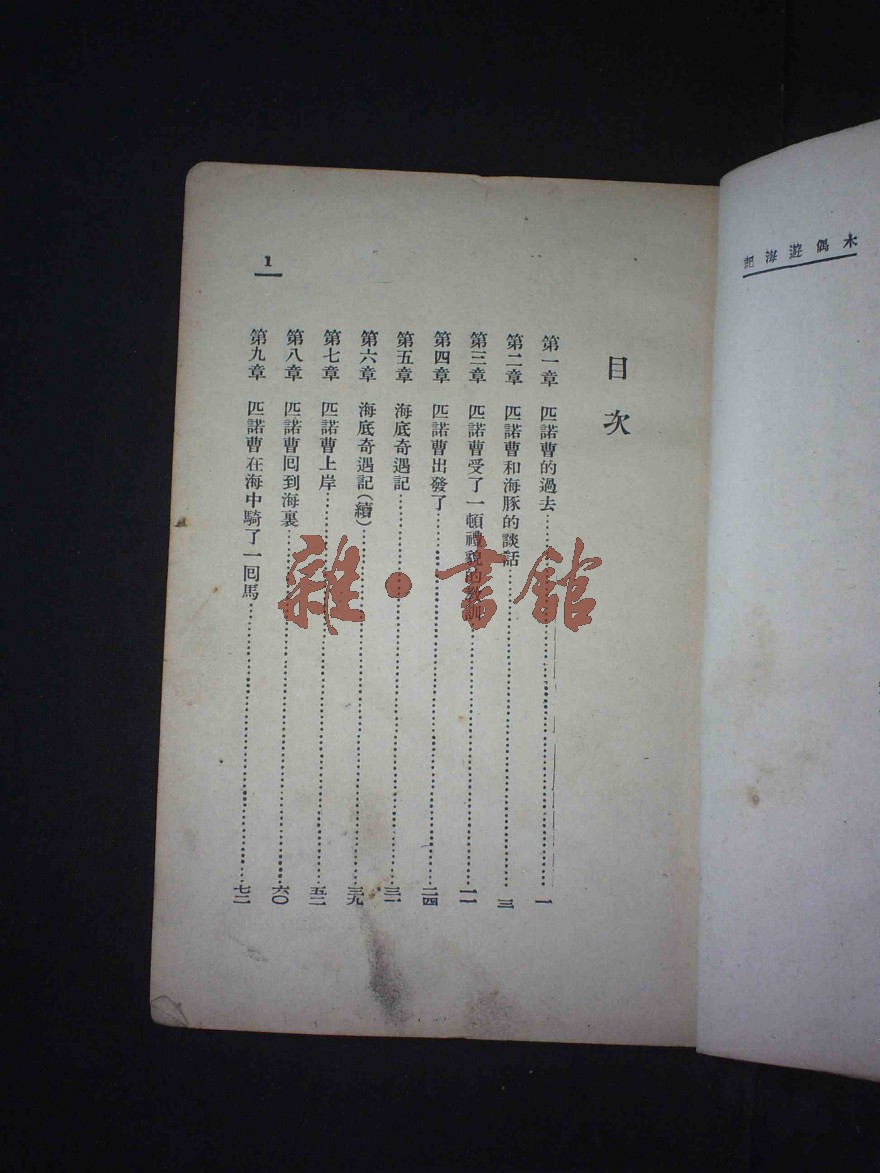 木偶遊海記
目次
第一章 匹諾曹的過去………一
第二章 匹諾曹和海豚的談話………三
第三章 匹諾曹受了一頓禮貌的教訓………一一
第四章 匹諾曹出發了………二四
第五章 海底奇遇記………三一
第六章 海底奇遇記(續)………三九
第七章 匹諾曹上岸………五二
第八章 匹諾曹囘到海裏………六〇
第九章 匹諾曹在海中騎了一囘馬………七二
1
雜·書館